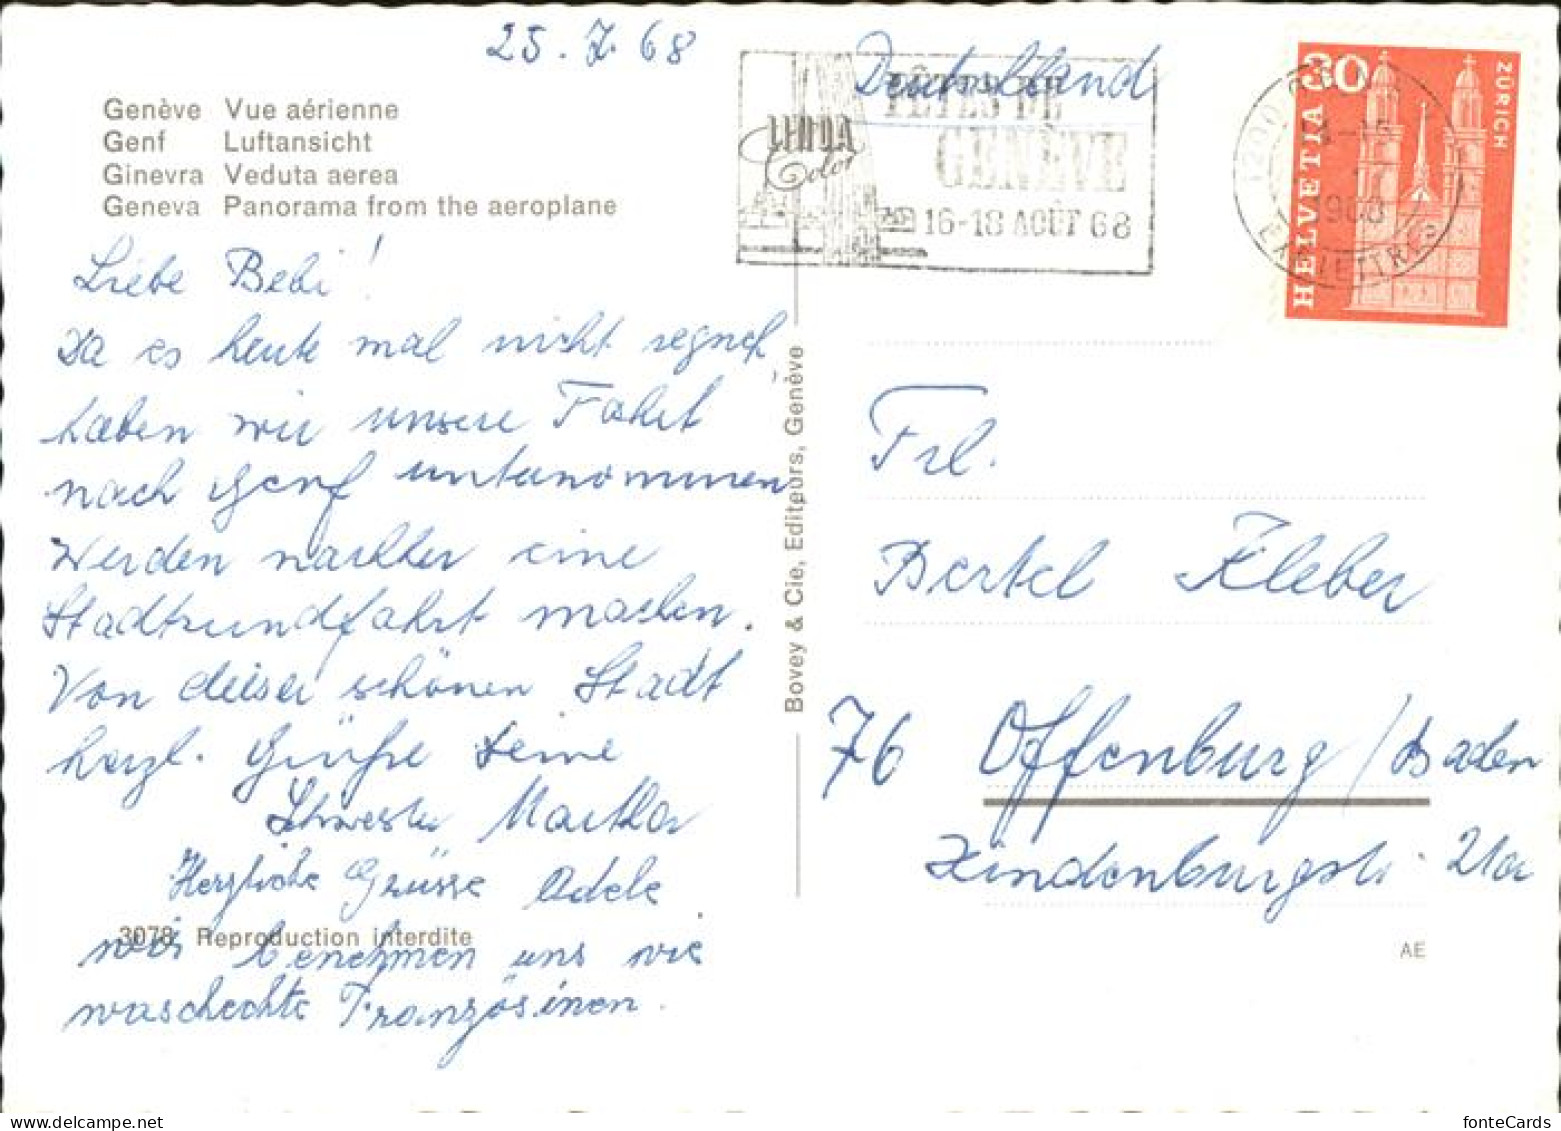 25.7.68
Genève Vue aérienne
Genf Luftansicht
Ginevra Veduta aerea
Geneva Panorama from the aeroplane
Liebe Bebi!
Da es heute mal nicht regnet,
haben wir unsere Fahrt
nach Genf unternommen
Werden nachher eine
Stadtrundfahrt machen.
Von dieser schönen Stadt
herzl. Grüße Deine
Schwester Martha
Herzliche Grüsse Adele
3078 Reproduction interdite
wir benehmen uns wie
waschechte Französinen.
Bovey & Cie, Editeurs, Genève
Deutschland
LINDA
Color
FÊTES DE
GENÈVE
16-18 AOÛT 68
1200 GENÈVE
1968
EXP. LETTRES
30
HELVETIA
ZÜRICH
Frl.
Bertel Kleber
76 Offenburg/Baden
Hindenburgstr. 21a
AE
delcampe.net
fonteCards